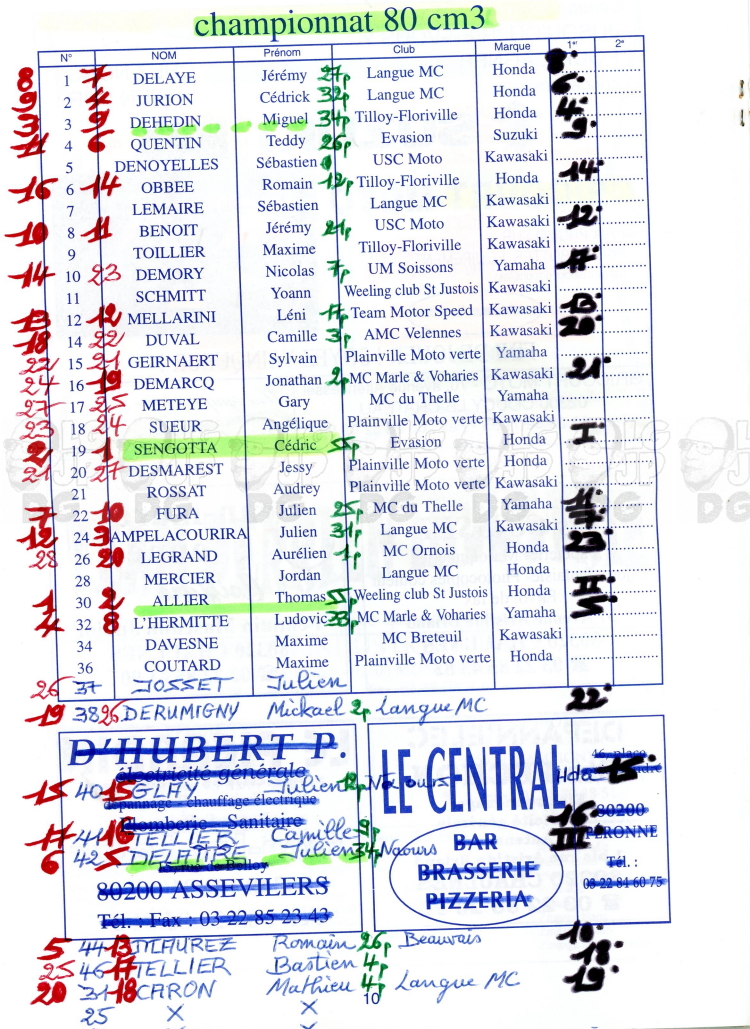 championnat 80 cm3
N° NOM Prénom Club Marque 1er 2e
8 1 7 DELAYE Jérémy 27p Langue MC Honda 8
9 2 4 JURION Cédrick 32p Langue MC Honda 6
3 3 9 DEHEDIN Miguel 34p Tilloy-Floriville Honda 4
11 4 6 QUENTIN Teddy 26p Evasion Suzuki 9
5 DENOYELLES Sébastien USC Moto Kawasaki
16 6 14 OBBEE Romain 12p Tilloy-Floriville Honda 14
7 LEMAIRE Sébastien Langue MC Kawasaki
10 8 11 BENOIT Jérémy 21p USC Moto Kawasaki 12
9 TOILLIER Maxime Tilloy-Floriville Kawasaki
14 10 23 DEMORY Nicolas 7p UM Soissons Yamaha 17
11 SCHMITT Yoann Weeling club St Justois Kawasaki
13 12 12 MELLARINI Léni 17p Team Motor Speed Kawasaki 13
18 14 22 DUVAL Camille 3p AMC Velennes Kawasaki 20
22 15 21 GEIRNAERT Sylvain Plainville Moto verte Yamaha
24 16 19 DEMARCQ Jonathan 2p MC Marle & Voharies Kawasaki 21
27 17 25 METEYE Gary MC du Thelle Yamaha
23 18 24 SUEUR Angélique Plainville Moto verte Kawasaki
2 19 1 SENGOTTA Cédric 55p Evasion Honda I
21 20 27 DESMAREST Jessy Plainville Moto verte Honda
21 ROSSAT Audrey Plainville Moto verte Kawasaki
7 22 10 FURA Julien 25p MC du Thelle Yamaha 11
12 24 3 AMPELACOURIRA Julien 31p Langue MC Kawasaki 7
28 26 20 LEGRAND Aurélien 1p MC Ornois Honda 23
28 MERCIER Jordan Langue MC Honda
1 30 2 ALLIER Thomas 55p Weeling club St Justois Honda II
4 32 8 L'HERMITTE Ludovic 33p MC Marle & Voharies Yamaha 5
34 DAVESNE Maxime MC Breteuil Kawasaki
36 COUTARD Maxime Plainville Moto verte Honda
26 37 JOSSET Julien
19 38 26 DERUMIGNY Mickael 2p Langue MC 22
D'HUBERT P.
électricité générale
15 40 15 GLAY Julien 12p Naours Hda 15
dépannage - chauffage électrique
Plomberie - Sanitaire
17 41 16 TELLIER Camille 9p 16
6 42 5 DELATTRE Julien 34p Naours III
80200 ASSEVILERS
Tél. : Fax : 03 22 85 23 43
LE CENTRAL
BAR
BRASSERIE
PIZZERIA
46, place
80200
PÉRONNE
Tél. :
03 22 84 60 75
5 44 13 MAUREZ Romain 26p Beauvais 10
25 46 17 TELLIER Bastien 4p 18
20 31 18 CARON Mathieu 4p Langue MC 19
10
25 X X